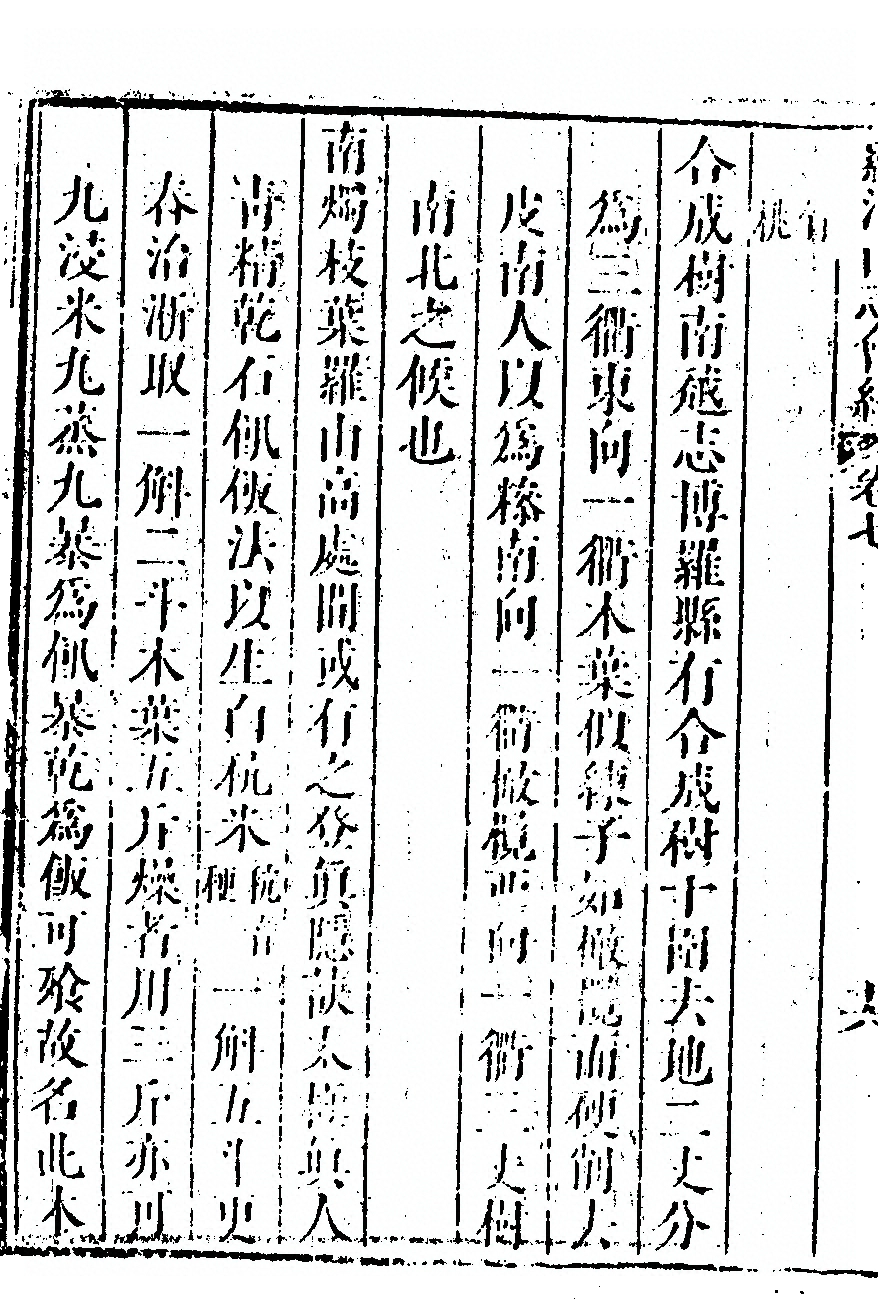 羅浮山志會編 卷七 六
合成樹南越志博羅縣有合成樹十圍去地二丈分
為三衢東向一衢木葉似楝子如橄欖而硬削去
皮南人以為糝南向一衢橄欖西向一衢三丈樹
南北之候也
南燭枝葉羅山高處間或有之登真隱訣太極真人
青精乾石䭀飯法以生白秔米一斛五斗更
舂治淅取一斛二斗木葉五斤燥者用三斤亦可
九浸米九蒸九暴為䭀暴乾為飯可飱故名此木